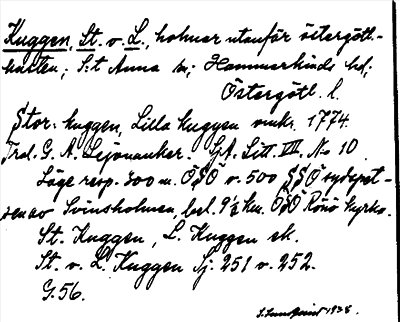 Kuggen, St. o. L., holmar utanför östergöt-
kusten; S:t Anna sn; Hammarkinds hd;
Östergötl. l.
Stor-kuggen, Lilla kuggen omkr. 1774.
Trol. G. A. Lejonanker. SjA. Litt. VIII. No 10.
Läge resp. 300 m. OSO o. 500 SSO sydspet-
sen av Svinsholmen, bel. 9½ km. OSO Rönö kyrka.
St. Kuggen, L. Kuggen ek.
St. o. L. Kuggen Sj. 251 o. 252.
G. 56.
S. Lundqvist 1938.